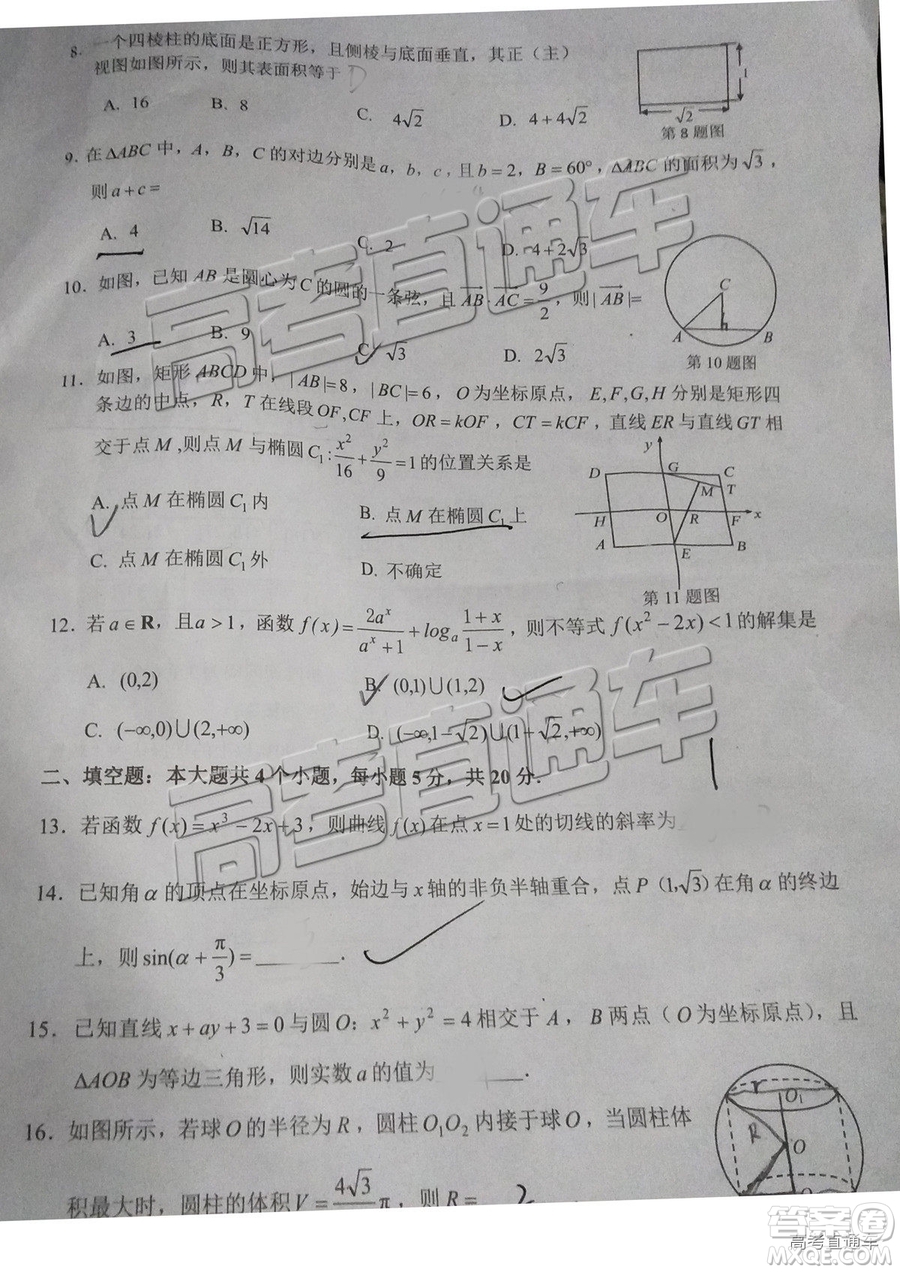 8. 一个四棱柱的底面是正方形，且侧棱与底面垂直，其正（主）
视图如图所示，则其表面积等于 D
A. 16 B. 8 C. 4√2 D. 4+4√2
1
√2
第8题图
9. 在ΔABC中，A，B，C的对边分别是a，b，c，且b=2，B=60°，ΔABC的面积为√3，
则a+c=
A. 4 B. √14 C. 2 D. 4+2√3
10. 如图，已知AB是圆心为C的圆的一条弦，且AB·AC=9/2，则|AB|=
A. 3 B. 9 C. √3 D. 2√3
C
A B
第10题图
11. 如图，矩形ABCD中，|AB|=8，|BC|=6，O为坐标原点，E,F,G,H分别是矩形四
条边的中点，R，T在线段OF,CF上，OR=kOF，CT=kCF，直线ER与直线GT相
交于点M,则点M与椭圆C₁:x²/16+y²/9=1的位置关系是
A. 点M在椭圆C₁内 B. 点M在椭圆C₁上
C. 点M在椭圆C₁外 D. 不确定
y
D G C
M T
H O R F x
A E B
第11题图
12. 若a∈R，且a>1，函数f(x)=2aˣ/(aˣ+1)+logₐ(1+x)/(1-x)，则不等式f(x²-2x)<1的解集是
A. (0,2) B. (0,1)∪(1,2)
C. (-∞,0)∪(2,+∞) D. (-∞,1-√2)∪(1+√2,+∞)
二、填空题：本大题共4个小题，每小题5分，共20分．
13. 若函数f(x)=x³-2x+3，则曲线f(x)在点x=1处的切线的斜率为
14. 已知角α的顶点在坐标原点，始边与x轴的非负半轴重合，点P（1,√3）在角α的终边
上，则sin(α+π/3)=______．
15. 已知直线x+ay+3=0与圆O：x²+y²=4相交于A，B两点（O为坐标原点），且
ΔAOB为等边三角形，则实数a的值为____．
16. 如图所示，若球O的半径为R，圆柱O₁O₂内接于球O，当圆柱体
积最大时，圆柱的体积V=4√3/ π，则R=
r
O₁
R
O
高考直通车
高考直通车
答案卷
高考直通车
MXQE.COM